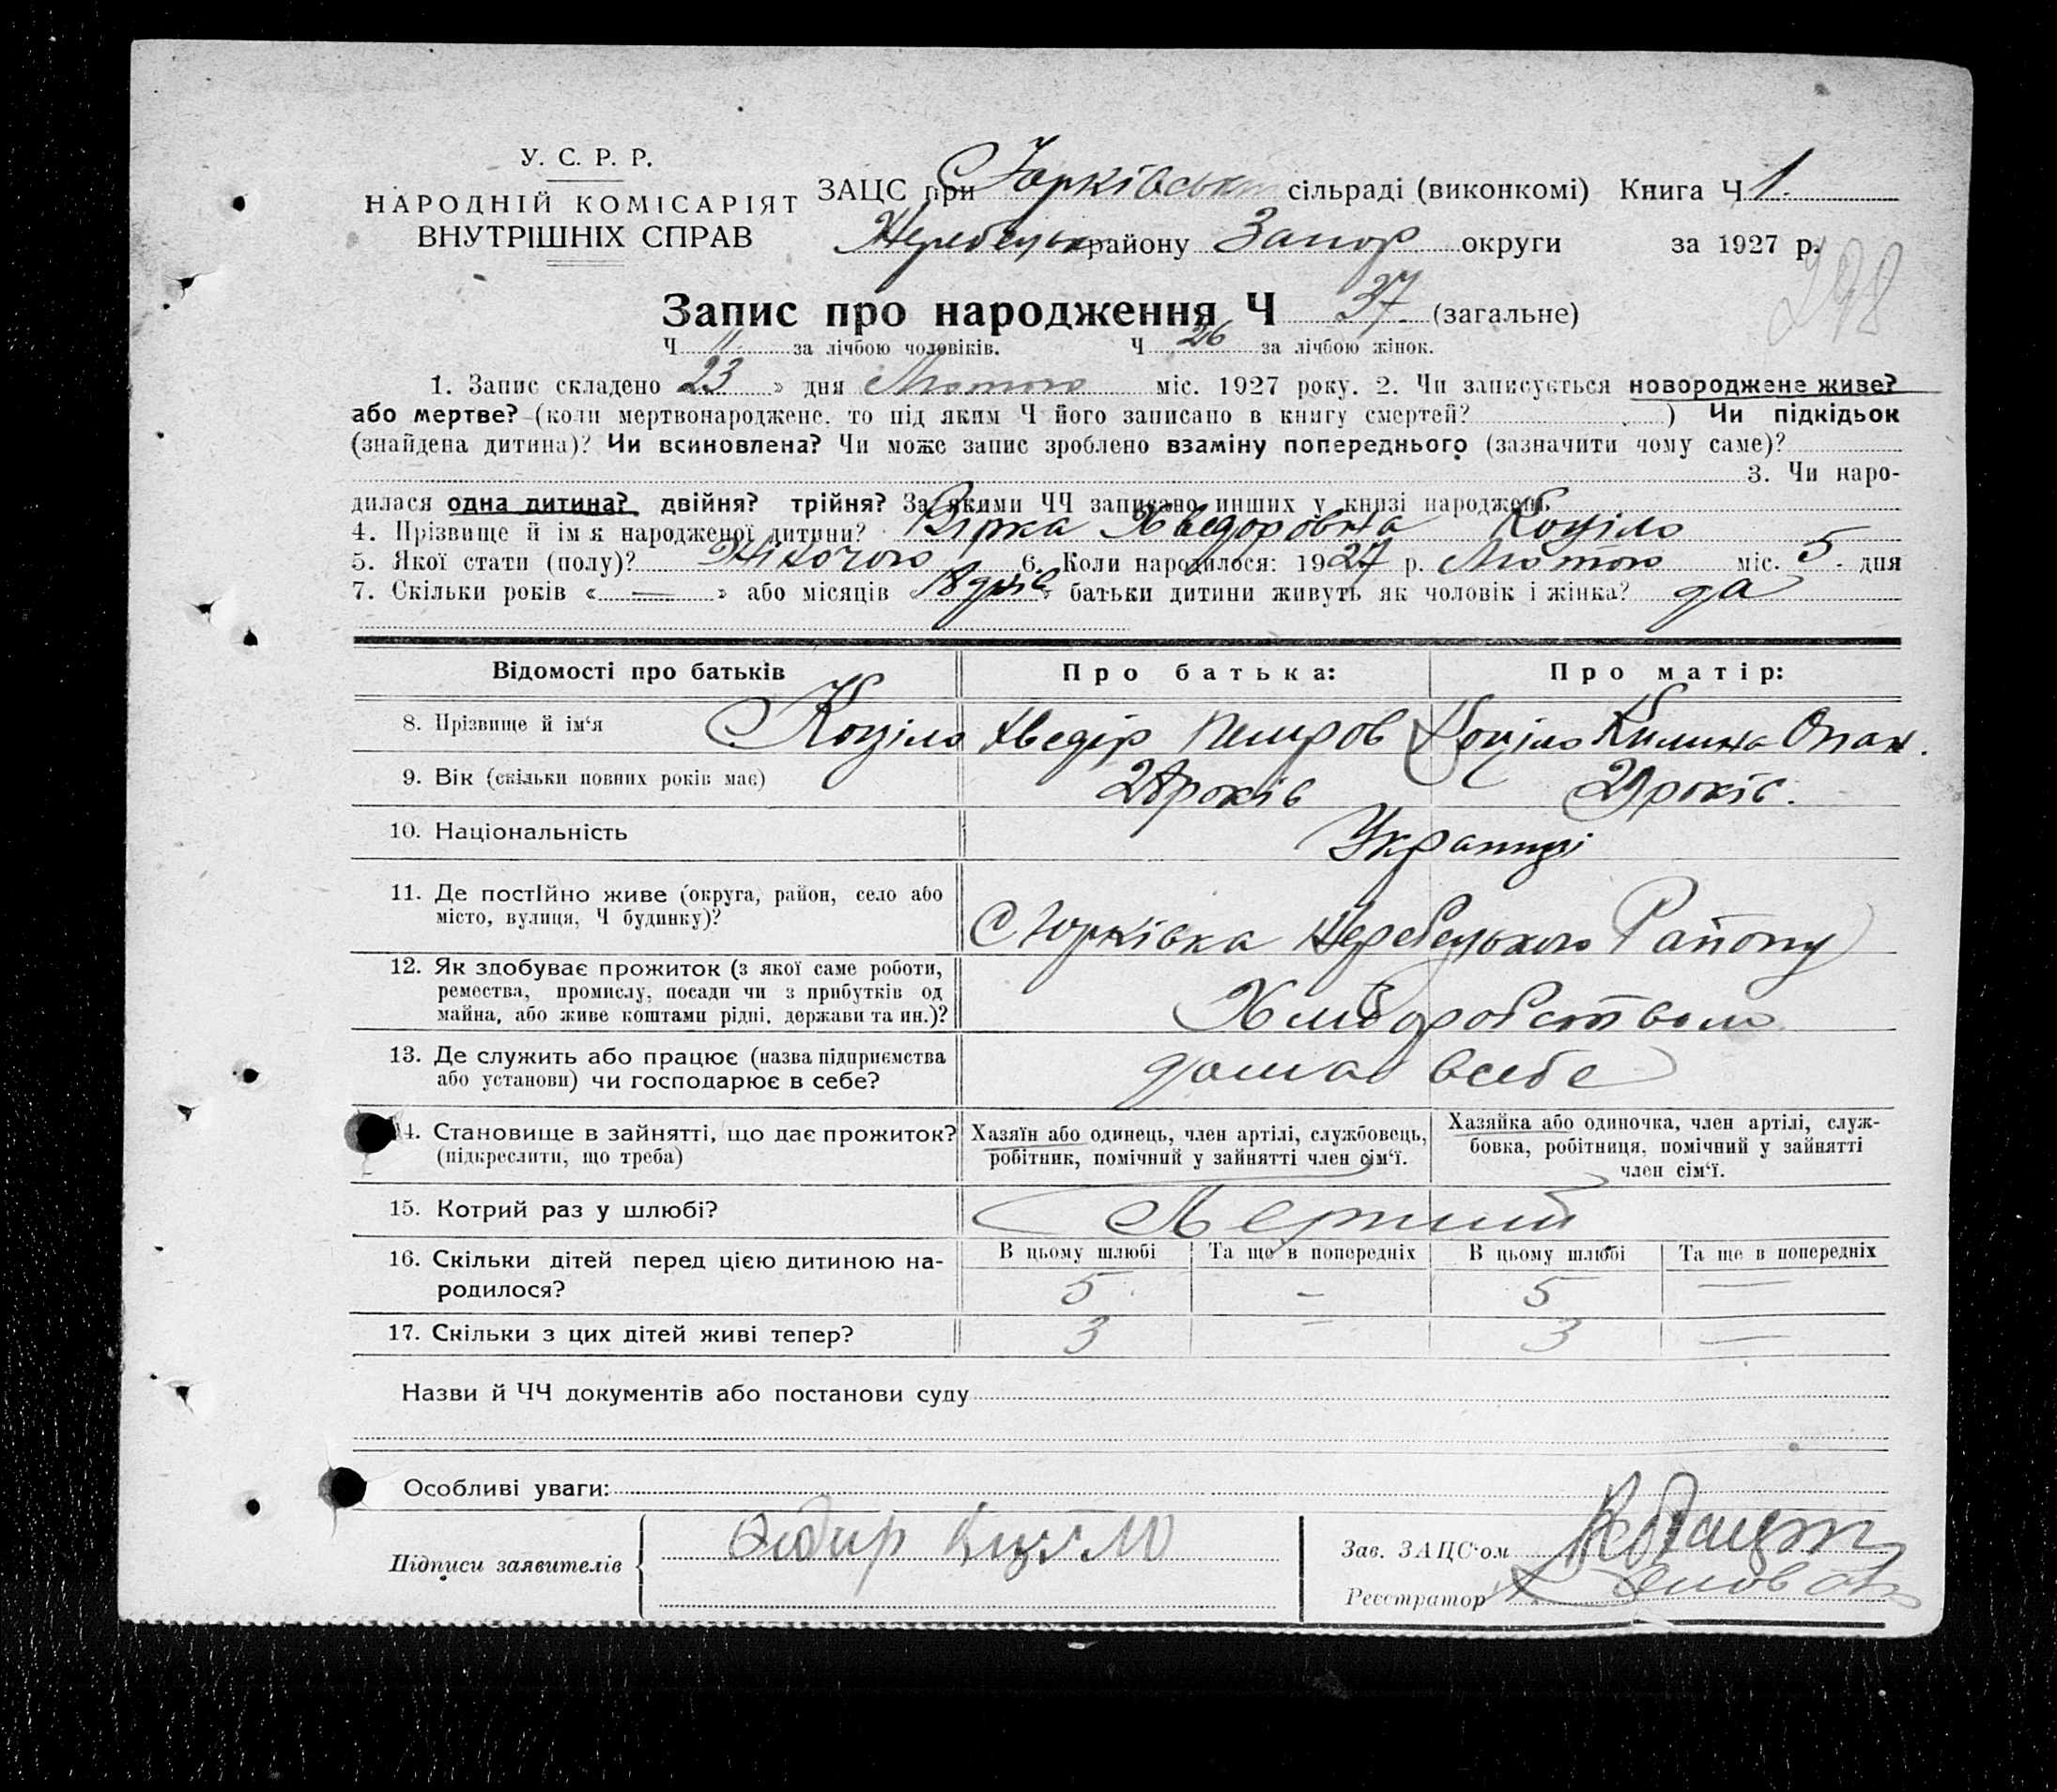 У. С. Р. Р.
НАРОДНІЙ КОМІСАРІЯТ
ВНУТРІШНІХ СПРАВ
ЗАЦС при Юрківськ сільраді (виконкомі) Книга Ч 1.
Жеребецьк району Запор округи за 1927 р.
298
Запис про народження Ч 37 (загальне)
Ч 11 за лічбою чоловіків. Ч 26 за лічбою жінок.
1. Запис складено 23 » дня Лютого міс. 1927 року. 2. Чи записується новороджене живе?
або мертве? (коли мертвонароджене, то під яким Ч його записано в книгу смертей? ) Чи підкідьок
(знайдена дитина)? Чи всиновлена? Чи може запис зроблено взаміну попереднього (зазначити чому саме)?
3. Чи наро-
дилася одна дитина? двійня? трійня? За якими ЧЧ записано инших у книзі народжень
4. Прізвище й ім'я народженої дитини? Вірка Хведоровна Коціло
5. Якої стати (полу)? Жіночою 6. Коли народилося: 1927 р. Лютого міс. 5. дня
7. Скільки років « — » або місяців « 18 днів » батьки дитини живуть як чоловік і жінка? да
Відомості про батьків Про батька: Про матір:
8. Прізвище й ім'я Коціло Хведір Петров Коціло Килина Опан.
9. Вік (скільки повних років має) 28 років 29 років.
10. Національність Українці
11. Де постійно живе (округа, район, село або
місто, вулиця, Ч будинку)? С Юрківка Жеребецького Району
12. Як здобуває прожиток (з якої саме роботи,
ремества, промислу, посади чи з прибутків од
майна, або живе коштами рідні, держави та ин.)? Хліборобством
13. Де служить або працює (назва підприємства
або установи) чи господарює в себе? дома в себе
14. Становище в зайнятті, що дає прожиток?
(підкреслити, що треба)
Хазяїн або одинець, член артілі, службовець,
робітник, помічний у зайнятті член сім'ї.
Хазяйка або одиночка, член артілі, служ-
бовка, робітниця, помічний у зайнятті
член сім'ї.
15. Котрий раз у шлюбі? Перший
16. Скільки дітей перед цією дитиною на-
родилося?
В цьому шлюбі Та ще в попередніх В цьому шлюбі Та ще в попередніх
5 – 5 —
17. Скільки з цих дітей живі тепер? 3 – 3 —
Назви й ЧЧ документів або постанови суду
Особливі уваги:
Підписи заявителів
Зав. ЗАЦС'ом
Реєстратор